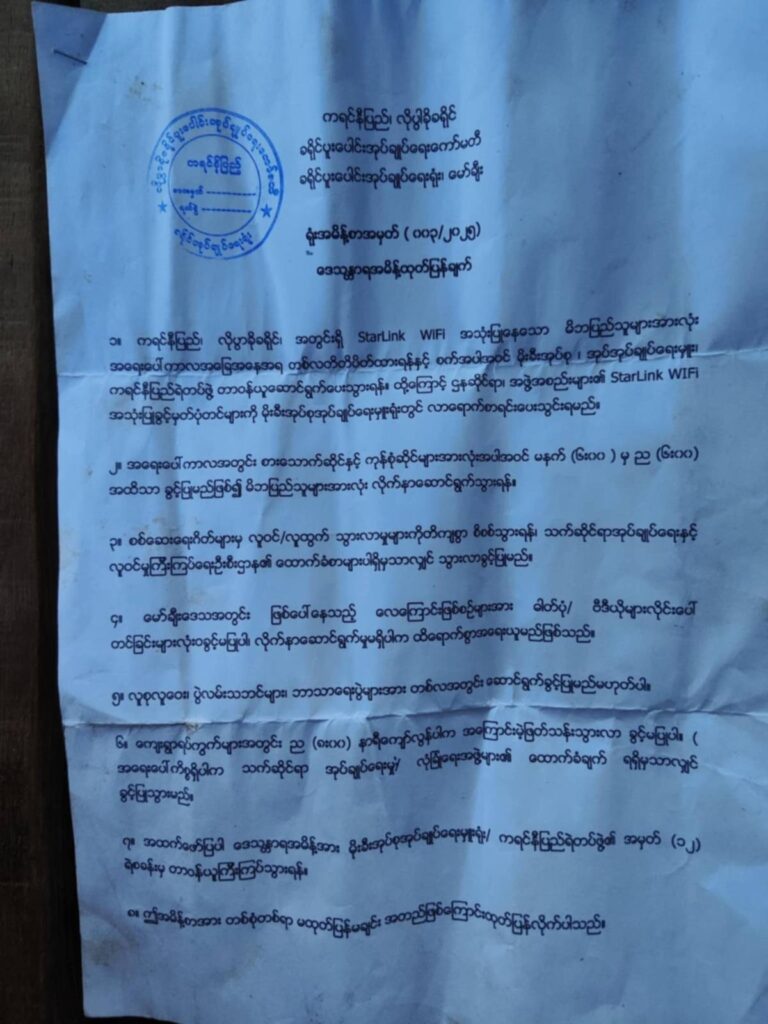 ကရင်နီပြည်၊ လိုပွါခိုခရိုင်
ခရိုင်ပူးပေါင်းအုပ်ချုပ်ရေးကော်မတီ
ခရိုင်ပူးပေါင်းအုပ်ချုပ်ရေးရုံး၊ မော်ချီး
ကရင်နီပြည်
စာအမှတ်
ရက်စွဲ
ရုံးအမိန့်စာအမှတ် ( ၀၀၃/၂၀၂၅)
ဒေသန္တာရအမိန့်ထုတ်ပြန်ချက်
၁။ ကရင်နီပြည်၊ လိုပွာခိုခရိုင်၊ အတွင်းရှိ StarLink WIFI အသုံးပြုနေသော မိဘပြည်သူများအားလုံး
အရေးပေါ်ကာလအခြေအနေအရ တစ်လတိတိပိတ်ထားရန်နှင့် စက်အပါအဝင် မိုးခီးအုပ်စု ၊ အုပ်အုပ်ချုပ်ရေးမှူး၊
ကရင်နီပြည်ရဲတပ်ဖွဲ့ တာဝန်ယူဆောင်ရွက်ပေးသွားရန်။ ထို့ကြောင့် ဌနဆိုင်ရာ၊ အဖွဲ့အစည်းများ၏ StarLink WIFI
အသုံးပြုခွင့်မှတ်ပုံတင်များကို မိုးခီးအုပ်စုအုပ်ချုပ်ရေးမှူးရုံးတွင် လာရောက်စာရင်းပေးသွင်းရမည်။
၂။ အရေးပေါ်ကာလအတွင်း စားသောက်ဆိုင်နှင့် ကုန်စုံဆိုင်များအားလုံးအပါအဝင် မနက် (၆း၀၀ ) မှ ည (၆း၀၀)
အထိသာ ခွင့်ပြုမည်ဖြစ်၍ မိဘပြည်သူများအားလုံး လိုက်နာဆောင်ရွက်သွားရန်။
၃။ စစ်ဆေးရေးဂိတ်များမှ လူဝင်/လူထွက် သွားလာမှုများကိုတိကျစွာ စိစစ်သွားရန်၊ သက်ဆိုင်ရာအုပ်ချုပ်ရေးနှင့်
လူဝင်မှုကြီးကြပ်ရေးဦးစီးဌာန၏ ထောက်ခံစာများပါရှိမှသာလျှင် သွားလာခွင့်ပြုမည်။
၄။ မော်ချီးဒေသအတွင်း ဖြစ်ပေါ်နေသည့် လေကြောင်းဖြစ်စဉ်များအား ဓါတ်ပုံ/ ဗီဒီယိုများလိုင်းပေါ်
တင်ခြင်းများလုံးဝခွင့်မပြုပါ၊ လိုက်နာဆောင်ရွက်မှုမရှိပါက ထိရောက်စွာအရေးယူမည်ဖြစ်သည်။
၅။ လူစုလူဝေး၊ ပွဲလမ်းသဘင်များ၊ ဘာသာရေးပွဲများအား တစ်လအတွင်း ဆောင်ရွက်ခွင့်ပြုမည်မဟုတ်ပါ။
၆။ ကျေးရွာရပ်ကွက်များအတွင်း ည (၈း၀၀) နာရီကျော်လွန်ပါက အကြောင်းမဲ့ဖြတ်သန်းသွားလာ ခွင့်မပြုပါ။ (
အရေးပေါ်ကိစ္စရှိပါက သက်ဆိုင်ရာ အုပ်ချုပ်ရေးမှူး/ လုံခြုံရေးအဖွဲ့များ၏ ထောက်ခံချက် ရရှိမှသာလျှင်
ခွင့်ပြုသွားမည်။
၇။ အထက်ဖော်ပြပါ ဒေသန္တာရအမိန့်အား မိုးခီးအုပ်စုအုပ်ချုပ်ရေးမှူးရုံး/ ကရင်နီပြည်ရဲတပ်ဖွဲ့၏ အမှတ် (၁၂)
ရဲစခန်းမှ တာဝန်ယူကြီးကြပ်သွားရန်။
၈။ ဤအမိန့်စာအား တစ်စုံတစ်ရာ မထုတ်ပြန်မချင်း အတည်ဖြစ်ကြောင်းထုတ်ပြန်လိုက်ပါသည်။